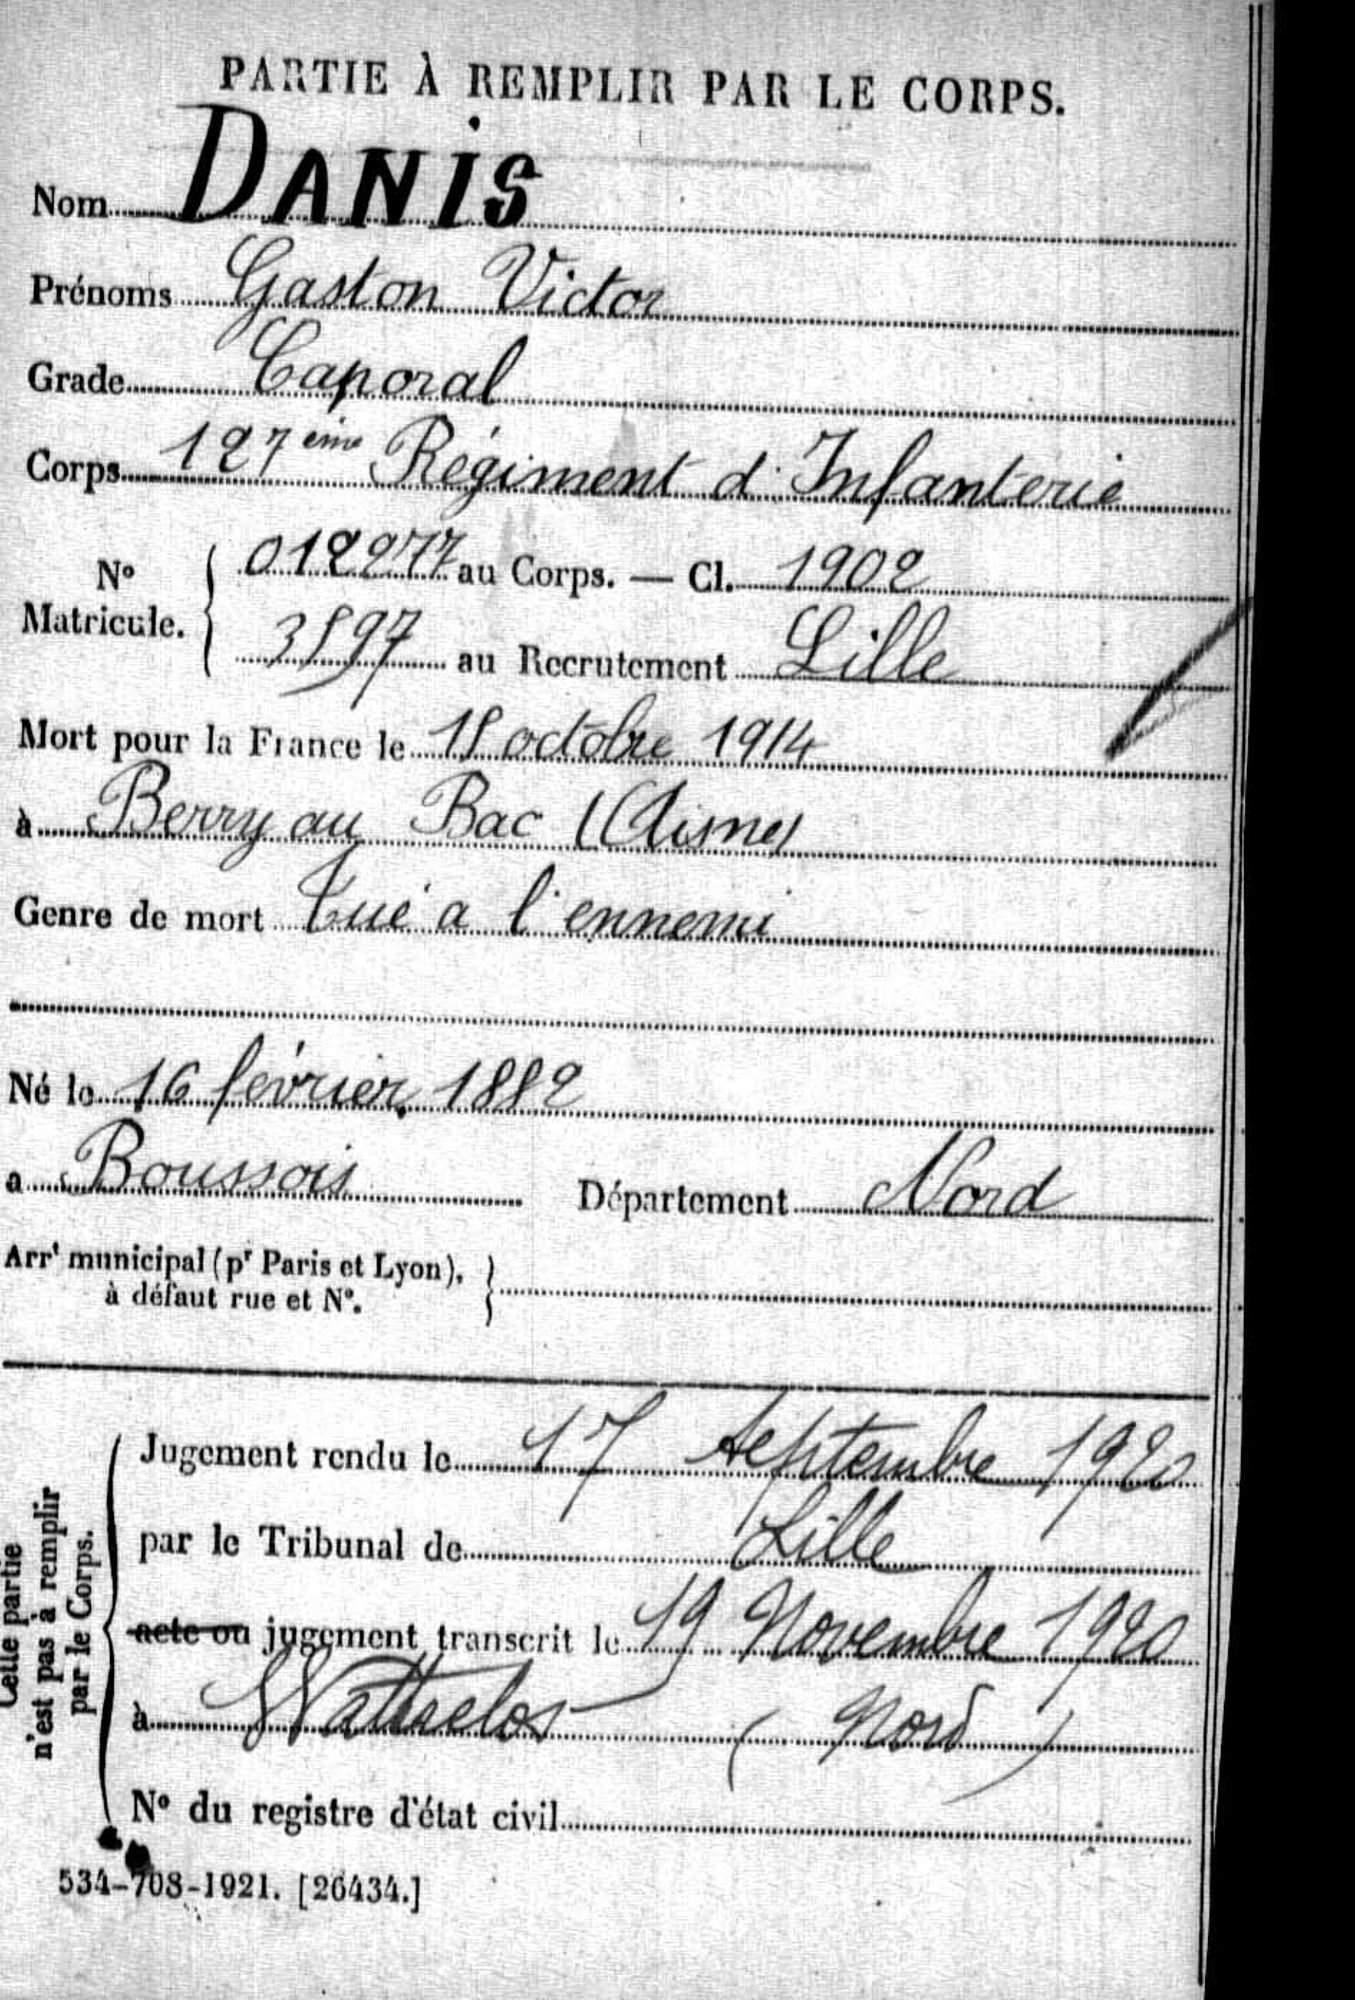 PARTIE À REMPLIR PAR LE CORPS.
Nom DANIS
Prénoms Gaston Victor
Grade Caporal
Corps 127ème Régiment d'Infanterie
No Matricule. 012277 au Corps. — Cl. 1902
3597 au Recrutement Lille
Mort pour la France le 15 octobre 1914
à Berry au Bac (Aisne)
Genre de mort Tué a l'ennemi
Né le 16 février 1882
a Boussois Département Nord
Arrt municipal (pr Paris et Lyon),
à défaut rue et No.
Cette partie
n'est pas à remplir
par le Corps.
Jugement rendu le 17 Septembre 1920
par le Tribunal de Lille
acte ou jugement transcrit le 19 Novembre 1920
à Wattrelos (Nord)
No du registre d'état civil
534-708-1921. [26434.]